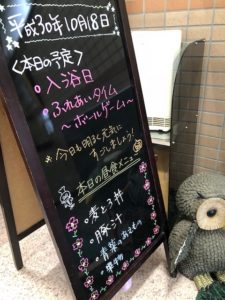 平成30年10月18日
〈本日の予定〉
・入浴日
・ふれあいタイム
〜ボールゲーム〜
今日も明るく元気に
すごしましょう!
本日の昼食メニュー
・豚汁
・果物